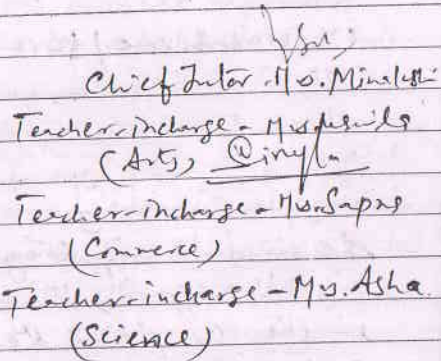 Chief Tutor - Ms. Minakshi
Teacher-incharge - Ms.
(Arts)
Teacher-incharge - Ms. Sapna
(Commerce)
Teacher-incharge - Ms. Asha
(Science)